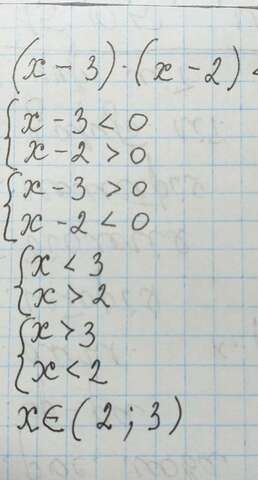 (x - 3) · (x - 2) <
{ x - 3 < 0
x - 2 > 0
{ x - 3 > 0
x - 2 < 0
{ x < 3
x > 2
{ x > 3
x < 2
x ∈ (2 ; 3)